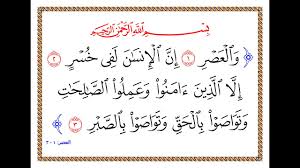 بِسْمِ اللَّهِ الرَّحْمَٰنِ الرَّحِيمِ
وَالْعَصْرِ ۝١ إِنَّ الْإِنسَٰنَ لَفِى خُسْرٍ ۝٢
إِلَّا الَّذِينَ ءَامَنُوا۟ وَعَمِلُوا۟ الصَّٰلِحَٰتِ
وَتَوَاصَوْا۟ بِالْحَقِّ وَتَوَاصَوْا۟ بِالصَّبْرِ ۝٣
العصر: ١-٣